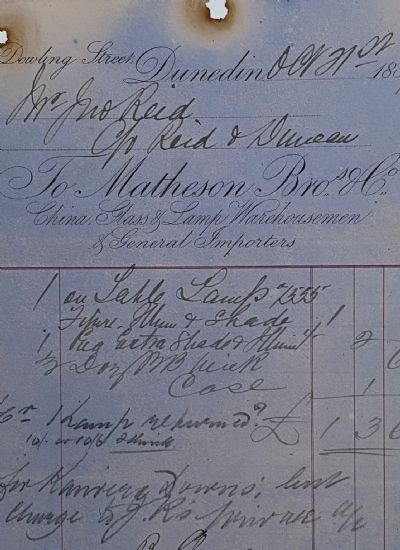 Dowling Street, Dunedin Oct 21st 18
Mr Jno Reid
C/o Reid & Duncan
To Matheson Bros & Co
China, Glass & Lamp Warehousemen
& General Importers
1 on Table Lamp 7555
Figure, & Shade 1
1 extra Shade & 2
½ Doz BB wick
Case 1
1 Lamp returned? £ 1 3 6
10/- or 10/6 I think
for Downs, but
Charge to J.R's private a/c